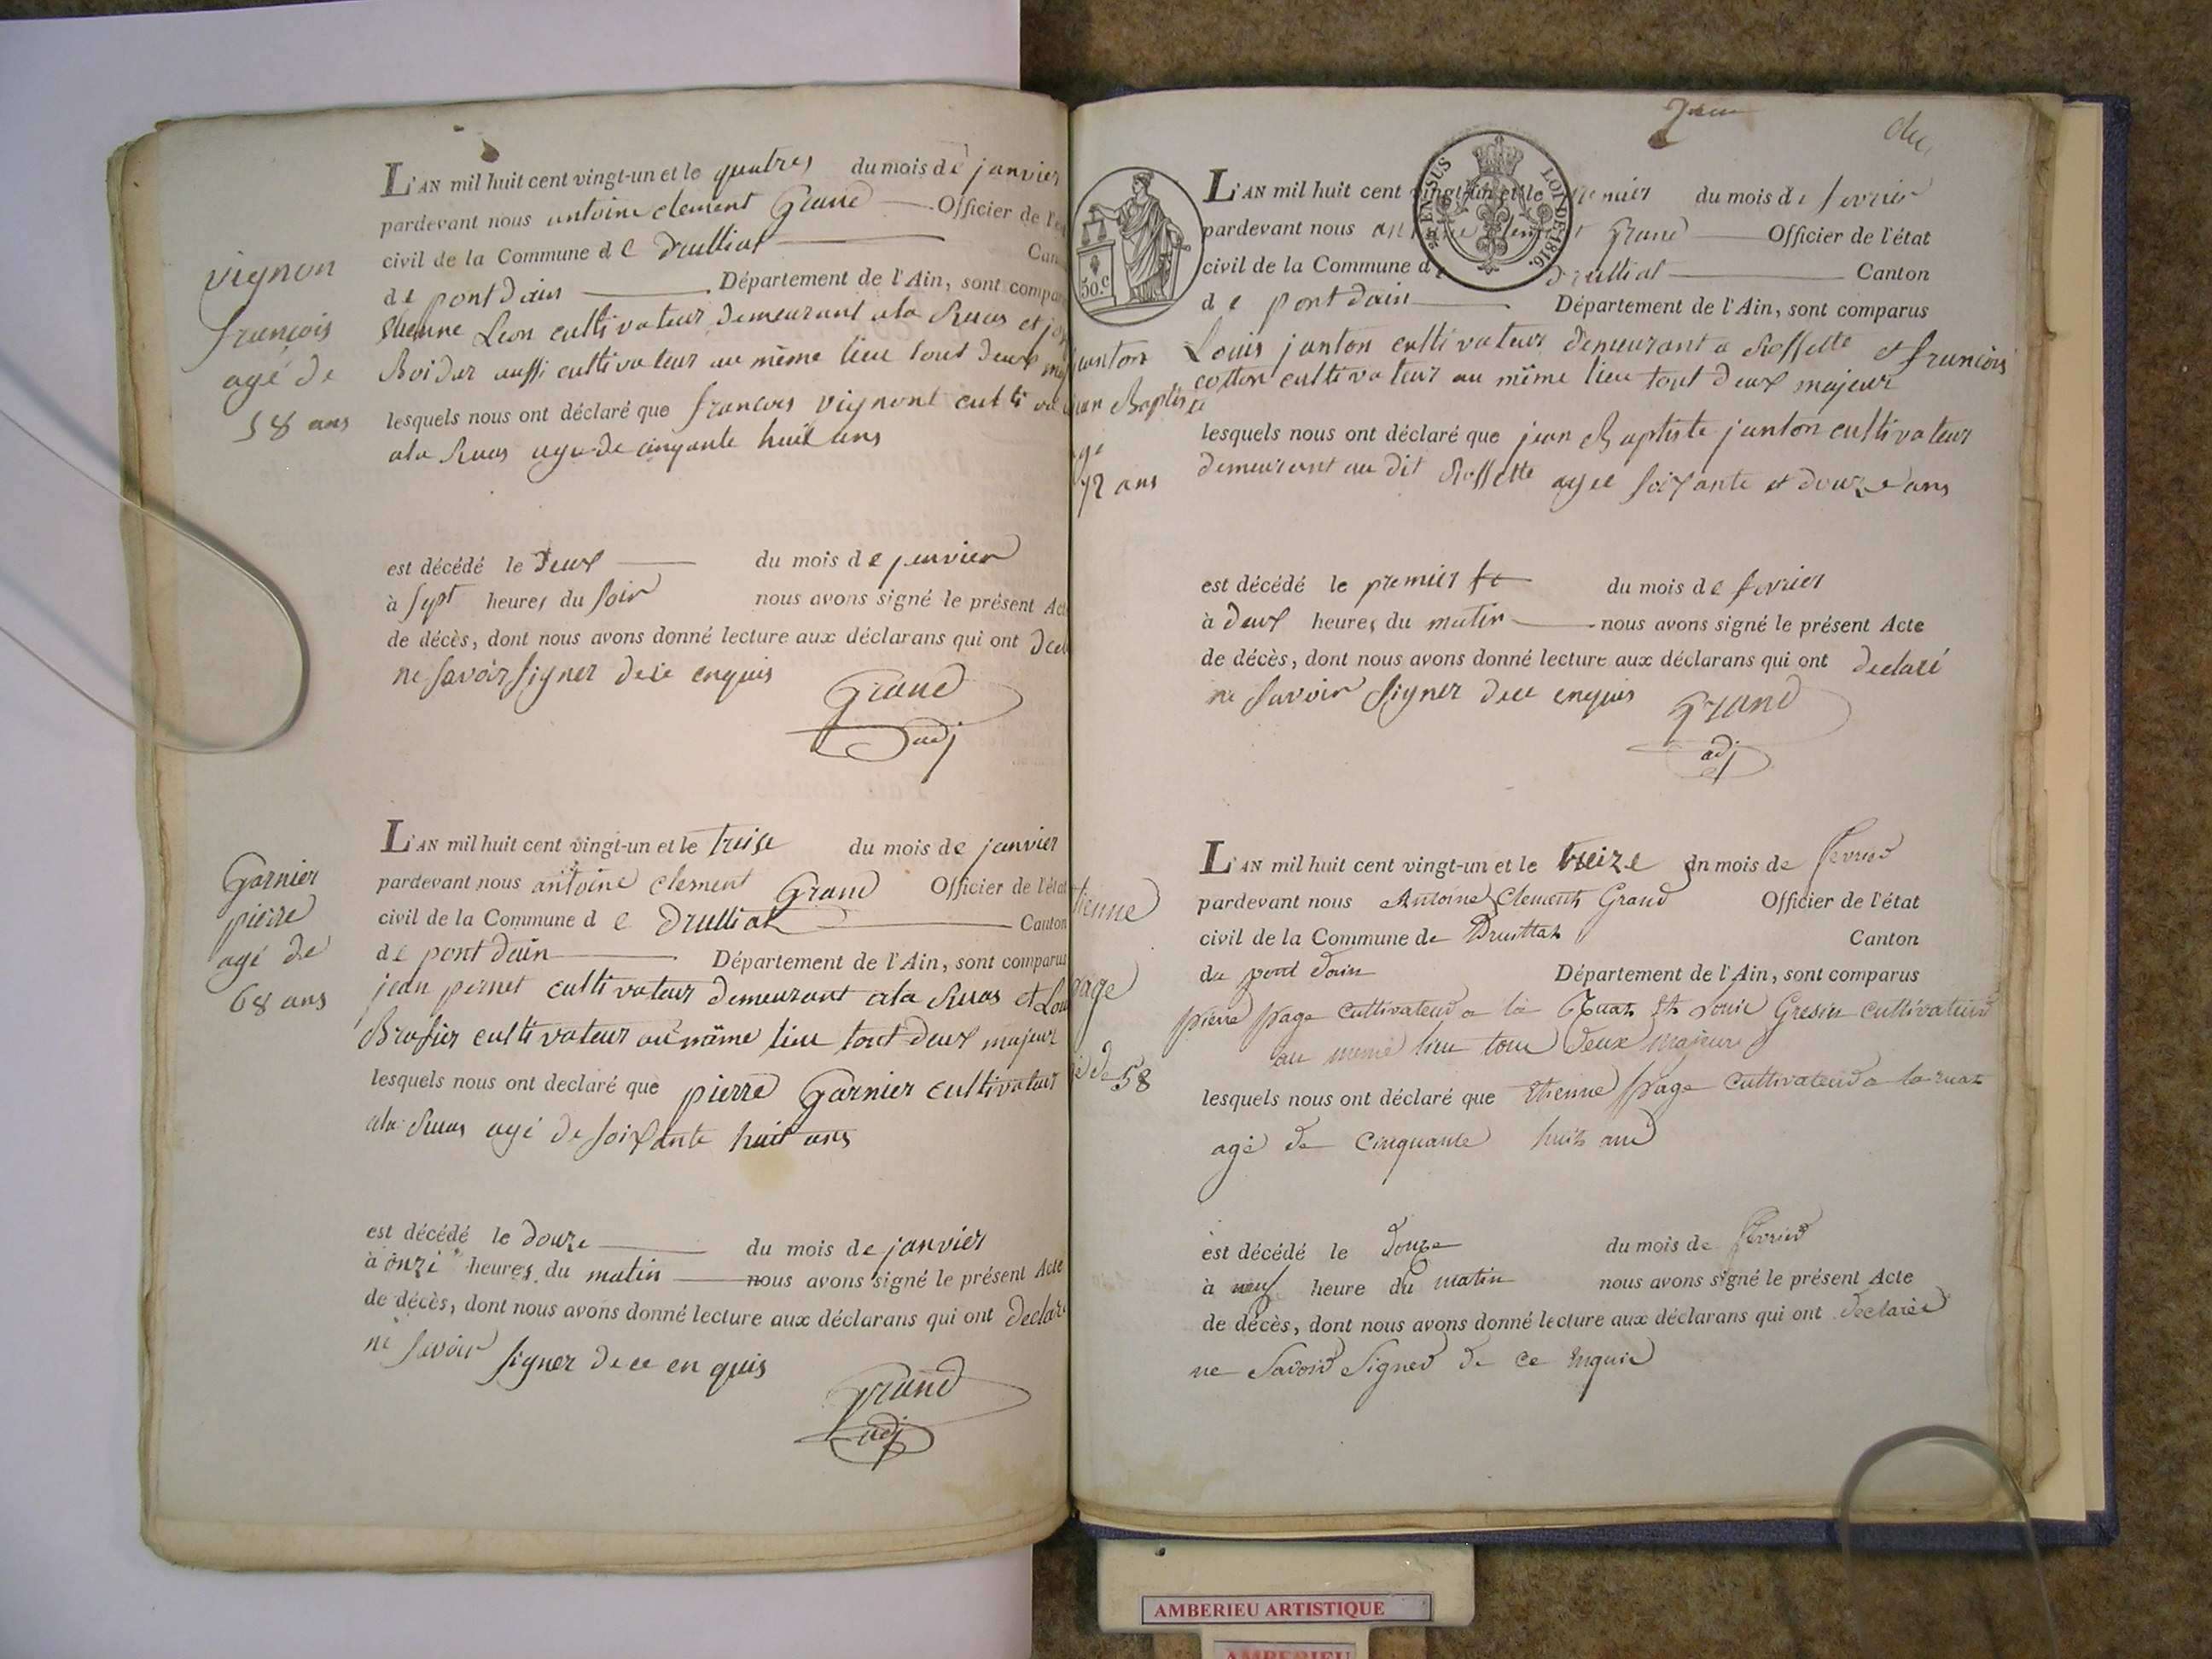 vignon
françois
agé de
58 ans
L'AN mil huit cent vingt-un et le quatres du mois de janvier
pardevant nous antoine clement Grand Officier de l'é
civil de la Commune de Druilliat Can
de pont dain Département de l'Ain, sont compar
Etienne Leon cultivateur demeurant ala Ruas et
Boidar aussi cultivateur au même lieu tout deux
lesquels nous ont déclaré que francois vignont culti
ala Ruas age de cinquante huit ans
est décédé le deux du mois de janvier
à sept heures du soir nous avons signé le présent Act
de décès, dont nous avons donné lecture aux déclarans qui ont
ne savoir signer dece enquis
Grand
adj
Garnier
pierre
agé de
68 ans
L'AN mil huit cent vingt-un et le treise du mois de janvier
pardevant nous antoine clement Grand Officier de l'état
civil de la Commune de Drulliat Canton
de pont dain Département de l'Ain, sont comparus
jean pernet cultivateur demeurant ala Ruas et Lou
Brosier cultivateur au même lieu tout deux majeur
lesquels nous ont declaré que pierre Garnier cultivateur
ala Ruas agé de soixante huit ans
est décédé le douze du mois de janvier
à onze heures du matin nous avons signé le présent Acte
de décès, dont nous avons donné lecture aux déclarans qui ont declar
ne savoir signer dece en quis
Grand
adj
50.c
EN SUS LOI DE 1816.
janton
an Baptiste
gé
72 ans
L'AN mil huit cent vingt-un et le premier du mois de fevrier
pardevant nous antoine clement Grand Officier de l'état
civil de la Commune de drulliat Canton
de pont dain Département de l'Ain, sont comparus
Louis janton cultivateur demeurant a Rossette et francois
cotton cultivateur au même lieu tout deux majeur
lesquels nous ont déclaré que jean Baptiste janton cultivateur
demeurant au dit Rossette agee soixante et douze ans
est décédé le premier fe du mois de fevrier
à deux heures du matin nous avons signé le présent Acte
de décès, dont nous avons donné lecture aux déclarans qui ont declaré
ne savoir signer dece enquis
Grand
adj
tienne
page
é de 58
L'AN mil huit cent vingt-un et le treize du mois de fevrier
pardevant nous Antoine Clement Grand Officier de l'état
civil de la Commune de Druillat Canton
de pont dain Département de l'Ain, sont comparus
pierre page cultivateur a la Ruaz et Louis Gresier cultivateur
au meme lieu tous deux majeurs
lesquels nous ont déclaré que Etienne page cultivateur a la ruaz
agé de cinquante huit ans
est décédé le douze du mois de fevrier
à neuf heure du matin nous avons signé le présent Acte
de décès, dont nous avons donné lecture aux déclarans qui ont declarée
ne savoir signer de ce enquis
AMBERIEU ARTISTIQUE
AMBERIEU